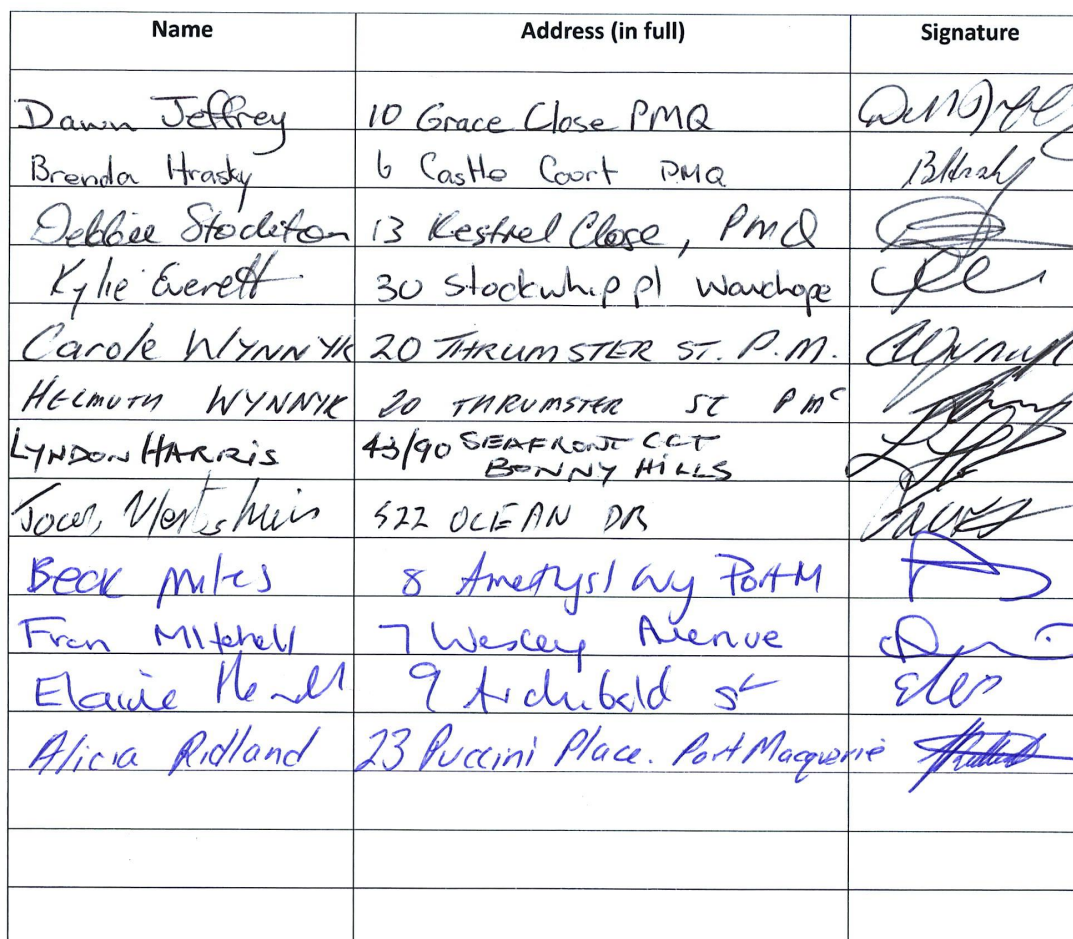 Name Address (in full) Signature
Dawn Jeffrey 10 Grace Close PMQ
Brenda Hrasky 6 Castle Court PMQ
Debbie Stockton 13 Kestrel Close, PMQ
Kylie Everett 30 Stockwhip pl Wauchope
Carole WYNNYK 20 THRUMSTER ST. P.M.
HELMUTH WYNNYK 20 THRUMSTER ST PMC
LYNDON HARRIS 43/90 SEAFRONT CCT
BONNY HILLS
522 OCEAN DR
Beck Miles 8 Amethyst Wy Port M
Fran Mitchell 7 Wesley Avenue
Elaine 9 Archibald St
Alicia Ridland 23 Puccini Place. Port Macquarie